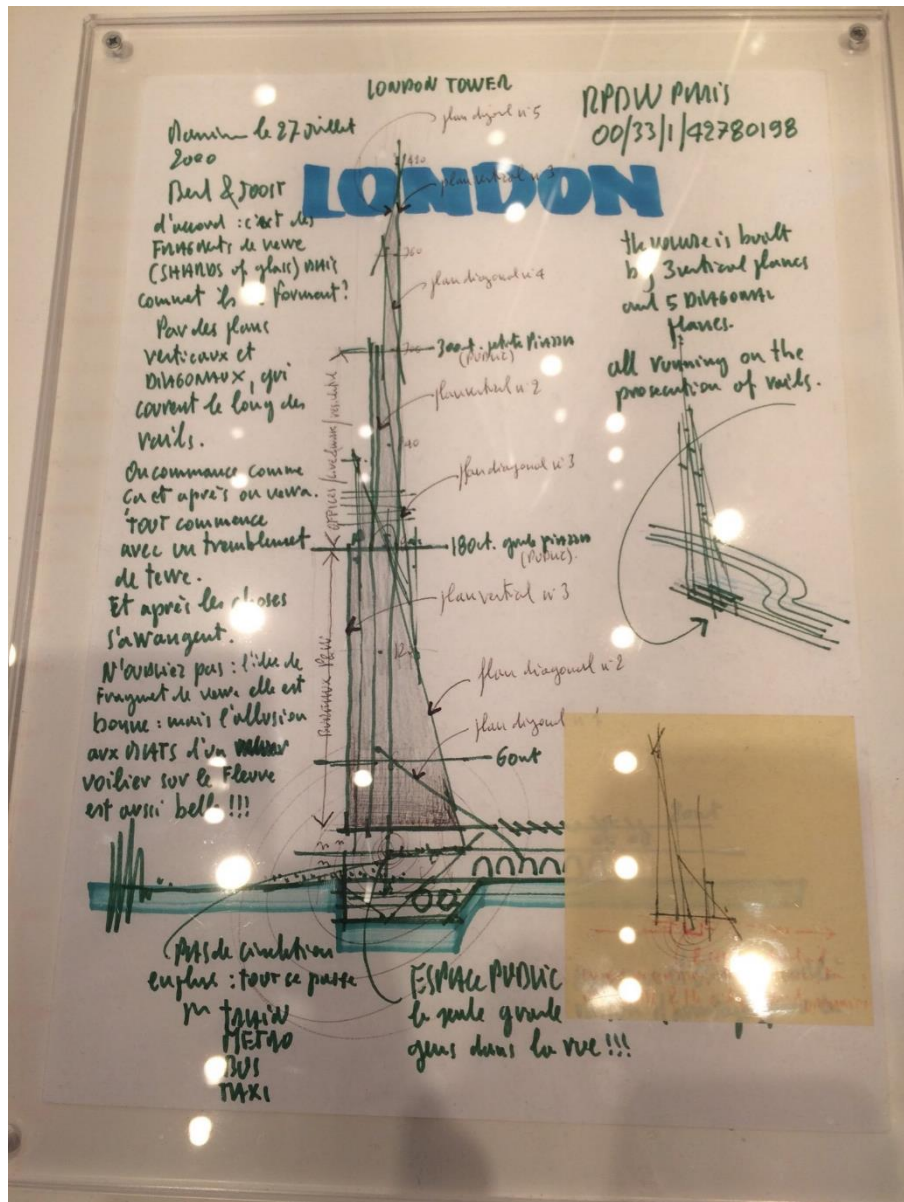 LONDON TOWER
RPBW PARIS
00/33/1/42780198
LONDON
le 27 juillet
2000
& JOOST
d'accord : c'est des
FRAGMENTS de verre
(SHARDS of glass) MAIS
comment ils se forment?
Par des plans
verticaux et
DIAGONAUX, qui
courent le long des
rails.
On commence comme
ça et après on verra.
TOUT commence
avec un tremblement
de terre.
Et après les choses
s'arrangent.
N'oubliez pas : l'idée de
Fragment de verre elle est
bonne : mais l'allusion
aux MATS d'un
voilier sur le Fleuve
est aussi belle !!!
plan diagonal n°5
plan vertical n°3
plan diagonal n°4
300mt. petite PIAZZA
(PUBLIC)
plan vertical n°2
plan diagonal n°3
180mt. grande piazza
(PUBLIC).
plan vertical n°3
plan diagonal n°2
plan diagonal
60mt
the volume is built
by 3 vertical planes
and 5 DIAGONAL
planes.
all running on the
prosecution of rails.
PAS de circulation
en plus : tout se passe
TRAIN
METRO
BUS
TAXI
ESPACE PUBLIC
la seule grande
gens dans la rue !!!